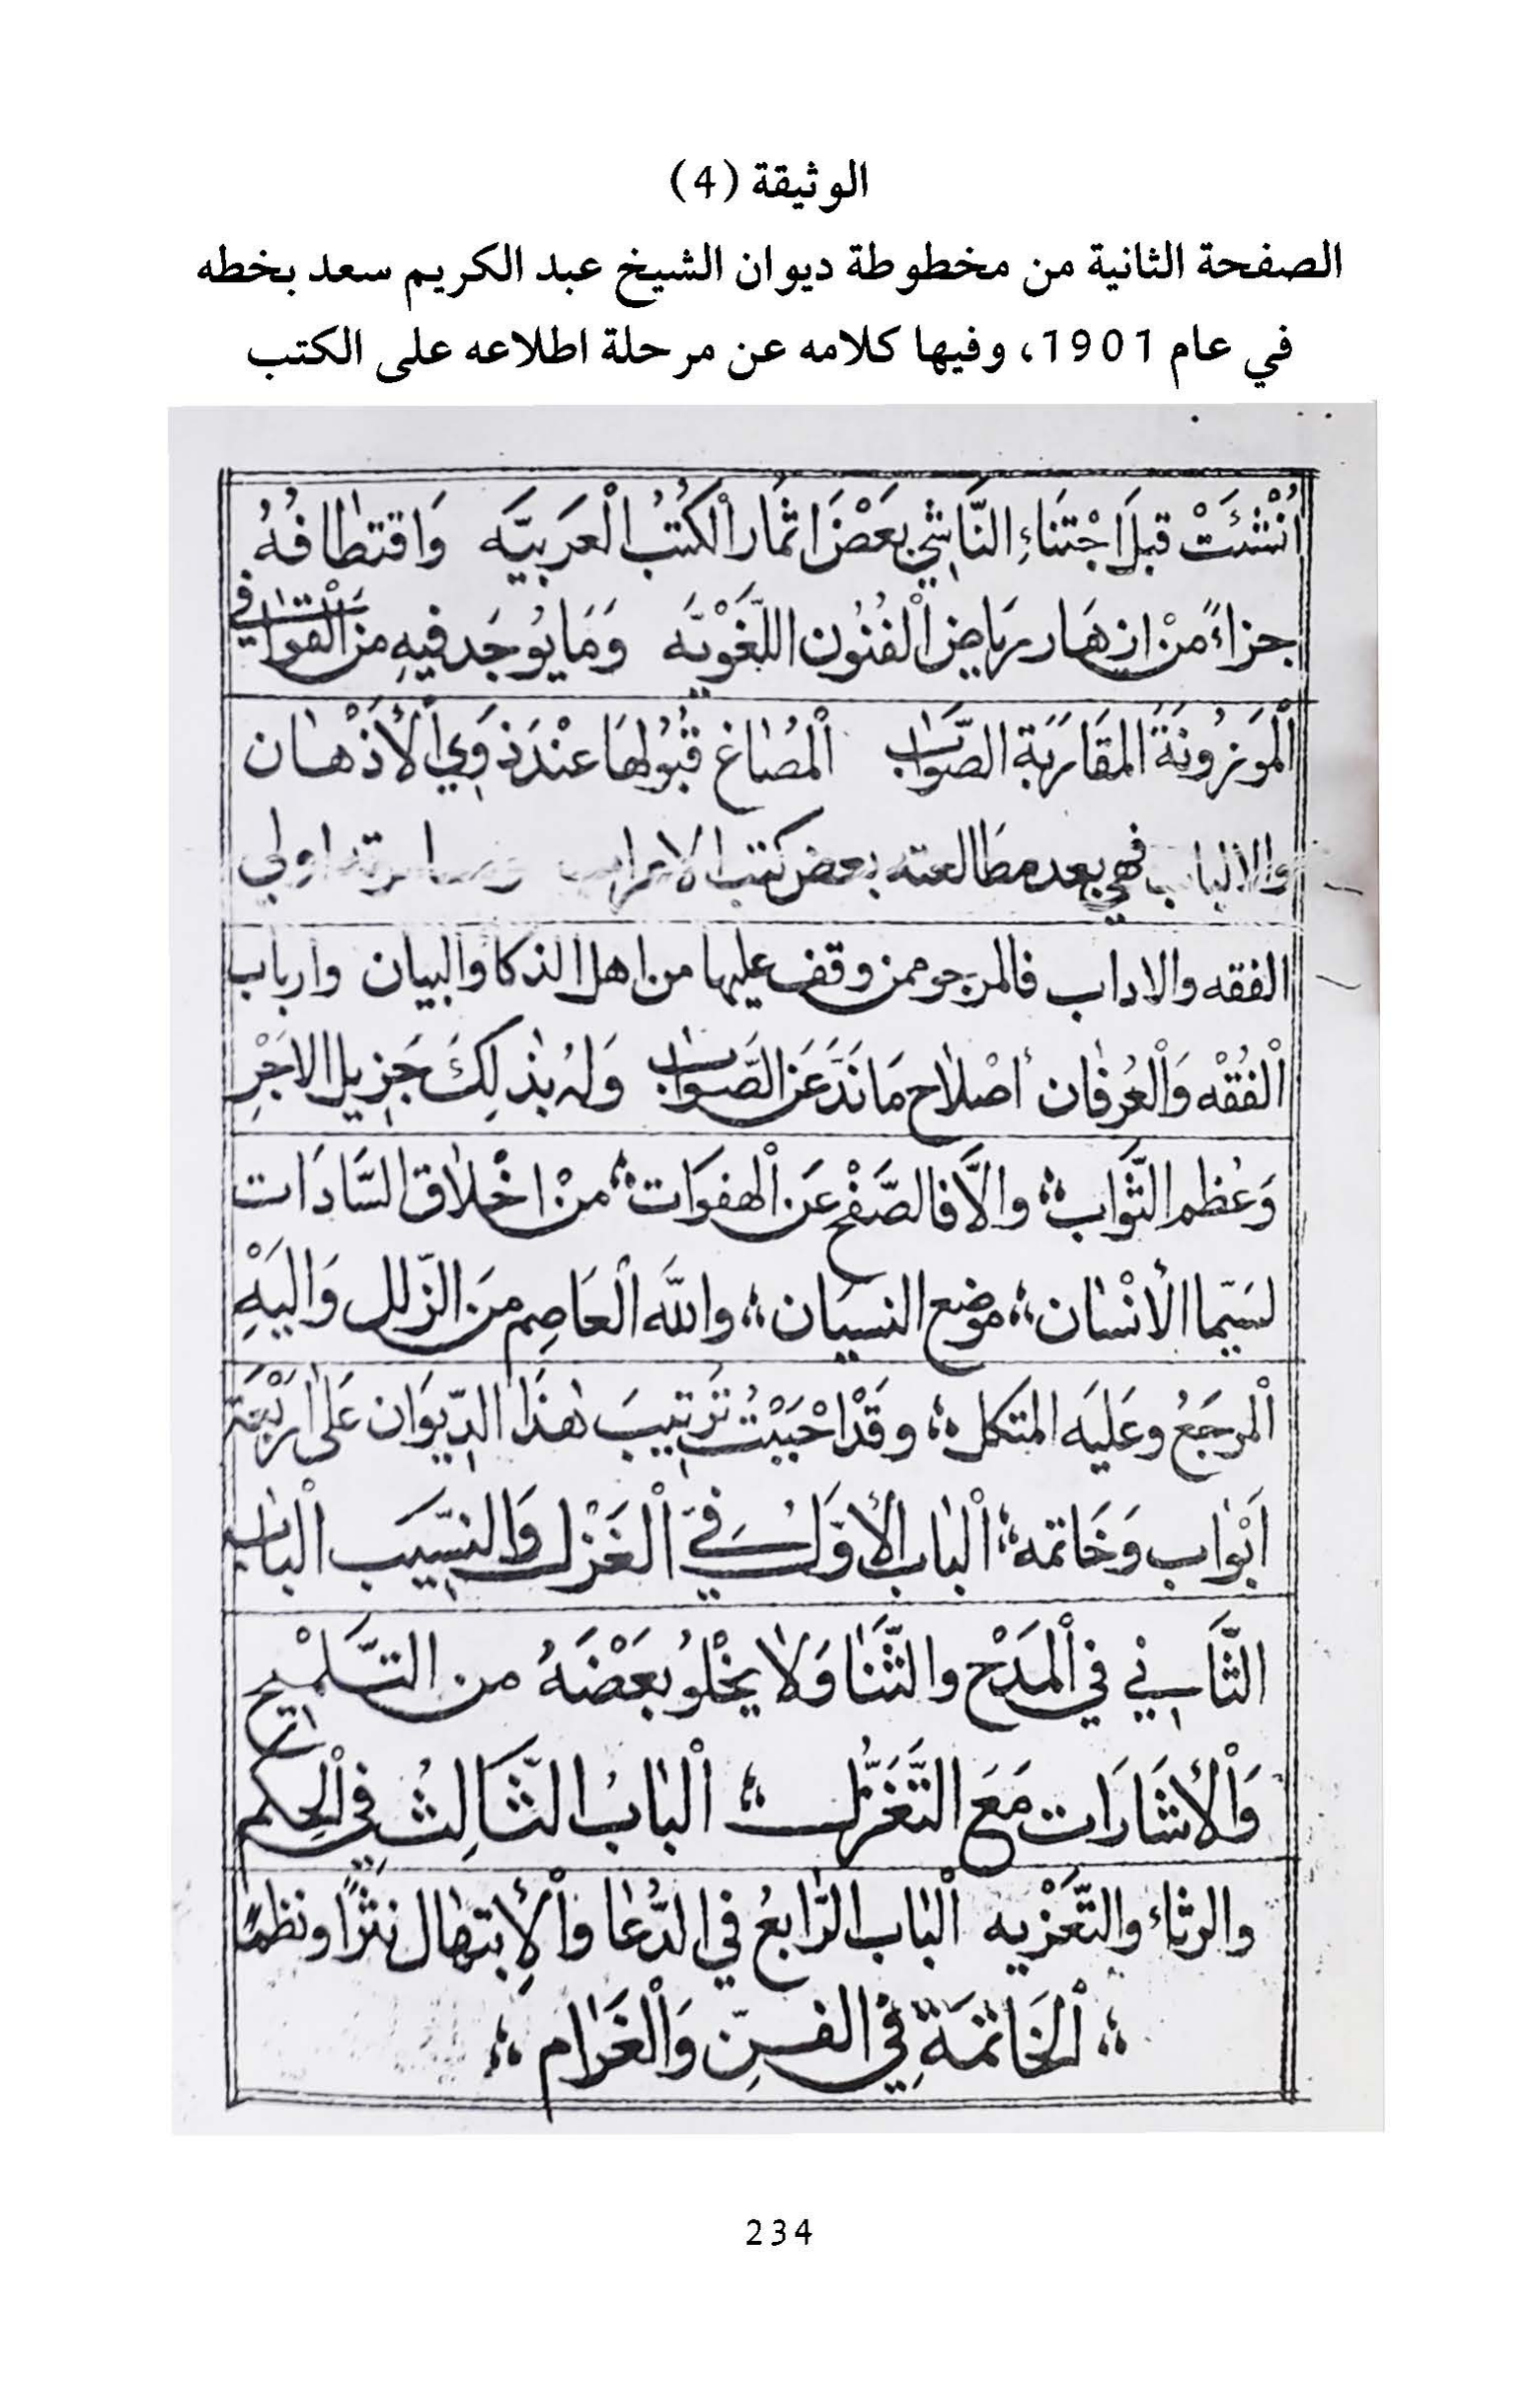 الوثيقة (4)
الصفحة الثانية من مخطوطة ديوان الشيخ عبد الكريم سعد بخطه
في عام 1901، وفيها كلامه عن مرحلة اطلاعه على الكتب
اُنْشئَتْ قبلَ اجْتنَاءِ النَّاشِي بَعْضَ اثمَار اْلكُتُبُ اْلعَرَبيَّه وَاقتطافُهُ
جزاءً مِنْ ازهَار رياض اْلفُنُون اللّغَويّه وَمَا يوُجَد فيهِ من اْلقوَافي
اْلمَوزُونَةَ المقَارَبَة الصَّوَاب اْلمُصَاغ قبُولهَا عنْدَ ذَوِي اْلأذْهَان
والالباب فهي بعد مطالعته بعض كتب الاعراب اولي
الفقه والاداب فالمرجو ممن وقف عليها من اهل الذكا والبيان وارباب
اْلفقْه وَاْلعُرفان اصْلاح مَا نَدَّ عَن الصَّوَاب وَلهُ بذلِكَ جَزيل الاجْرِ
وَعُظم الثَّواب ؛ والَّا فالصَّفْح عَن اْلهفوَات ؛ منْ اخْلاق السَّادَات
لسيّما الأنْسان ؛ موضع النسيَان ؛ والله اْلعَاصِم مِنَ الزّلل وَاليَهِ
اْلمرجَعُ وعَليَه المتكل ؛ وقَدْ احْبَبْتُ تَرتيبَ هٰذَا الدِّيوَان عَلى اربَعَة
اَبْوَاب وَخَاتمه ؛ اْلبَاب الأوّل في اْلغَزل وَالنسِيَب الباب
الثَّانِي في اْلمَدْح والثَّنَا وَلا يخْلُو بَعْضَهُ من التَّلميْح
وَاْلأشَارَات مَعَ التَّغَزُّل ؛ اْلبَابُ الثَّالِثُ في اْلحِكم
والرثاء والتَّعْزيه اْلبَاب الرَّابعُ في الدُّعَا وَاْلأِبتهَال نثرًا ونظمًا
؛ اْلخَاتمَة في الفنِّ وَاْلغَرَام ؛
234